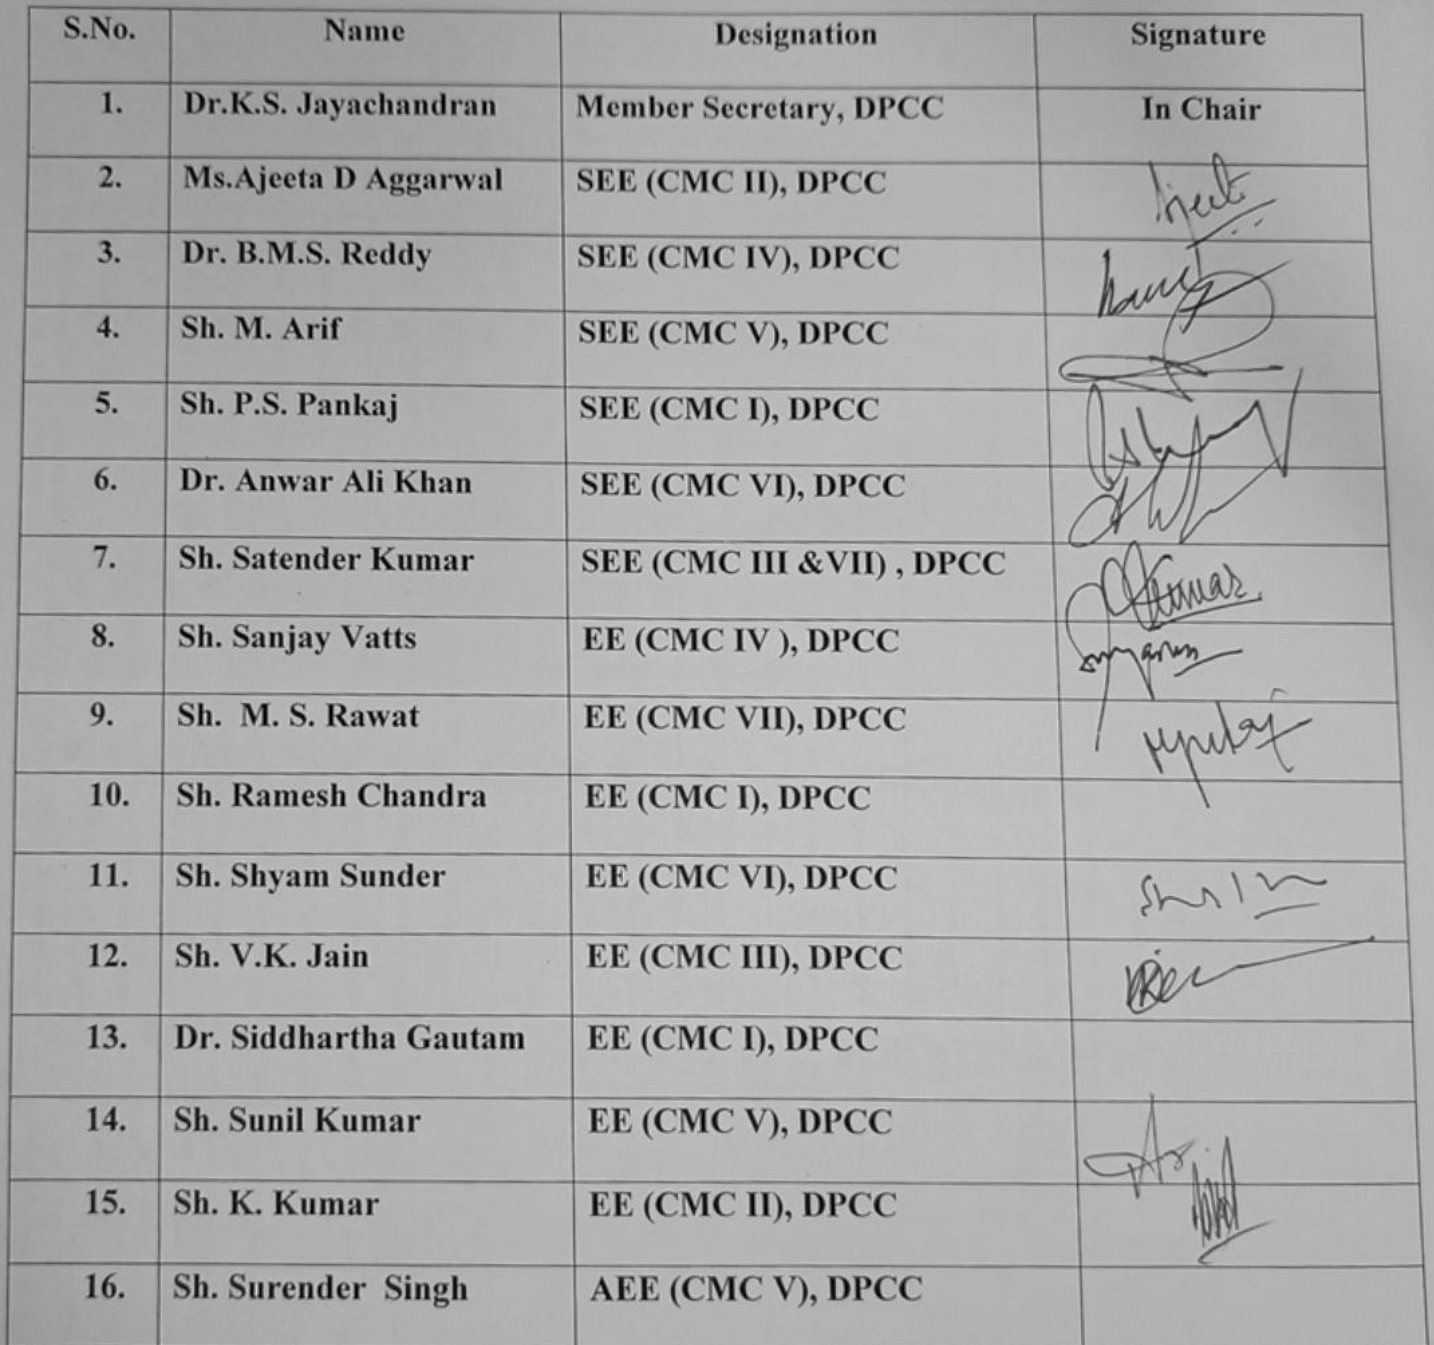 S.No. Name Designation Signature
1. Dr.K.S. Jayachandran Member Secretary, DPCC In Chair
2. Ms.Ajeeta D Aggarwal SEE (CMC II), DPCC
3. Dr. B.M.S. Reddy SEE (CMC IV), DPCC
4. Sh. M. Arif SEE (CMC V), DPCC
5. Sh. P.S. Pankaj SEE (CMC I), DPCC
6. Dr. Anwar Ali Khan SEE (CMC VI), DPCC
7. Sh. Satender Kumar SEE (CMC III &VII) , DPCC
8. Sh. Sanjay Vatts EE (CMC IV ), DPCC
9. Sh. M. S. Rawat EE (CMC VII), DPCC
10. Sh. Ramesh Chandra EE (CMC I), DPCC
11. Sh. Shyam Sunder EE (CMC VI), DPCC
12. Sh. V.K. Jain EE (CMC III), DPCC
13. Dr. Siddhartha Gautam EE (CMC I), DPCC
14. Sh. Sunil Kumar EE (CMC V), DPCC
15. Sh. K. Kumar EE (CMC II), DPCC
16. Sh. Surender Singh AEE (CMC V), DPCC